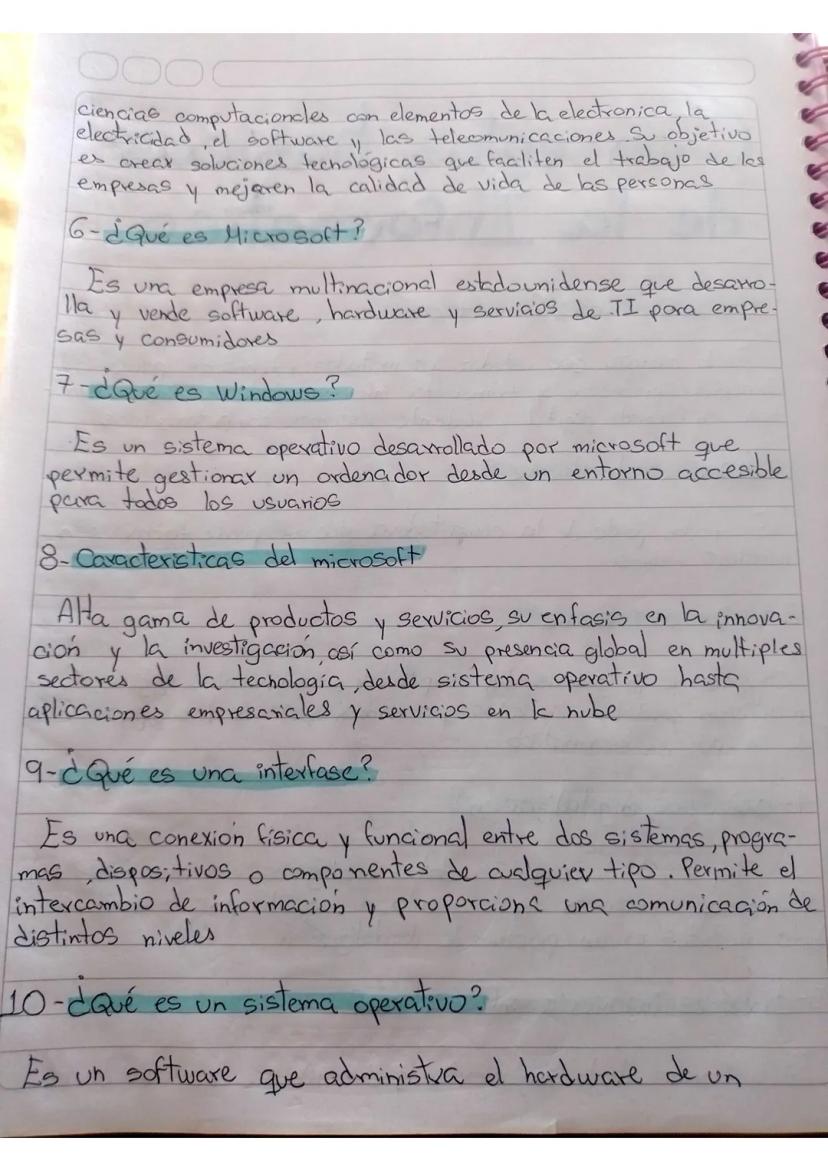 ciencias computacionales con elementos de la electronica, la
electricidad, el software y las telecomunicaciones. Su objetivo
es crear soluciones tecnológicas que faciliten el trabajo de las
empresas y mejoren la calidad de vida de las personas
6-¿Qué es Microsoft?
Es una empresa multinacional estadounidense que desarro-
lla y vende software, hardware y servicios de TI para empre-
sas y consumidores
7-¿Qué es Windows?
Es un sistema operativo desarrollado por microsoft que
permite gestionar un ordenador desde un entorno accesible
para todos los usuarios
8-Caracteristicas del microsoft
Alta gama de productos y servicios, su enfasis en la innova-
ción y la investigación, así como su presencia global en multiples
sectores de la tecnología, desde sistema operativo hasta
aplicaciones empresariales y servicios en la nube
9-¿Qué es una interfase?
Es una conexión física y funcional entre dos sistemas, progra-
mas, dispositivos o componentes de cualquier tipo. Permite el
intercambio de información y proporciona una comunicación de
distintos niveles
10-¿Qué es un sistema operativo?
Es un software que administra el hardware de un